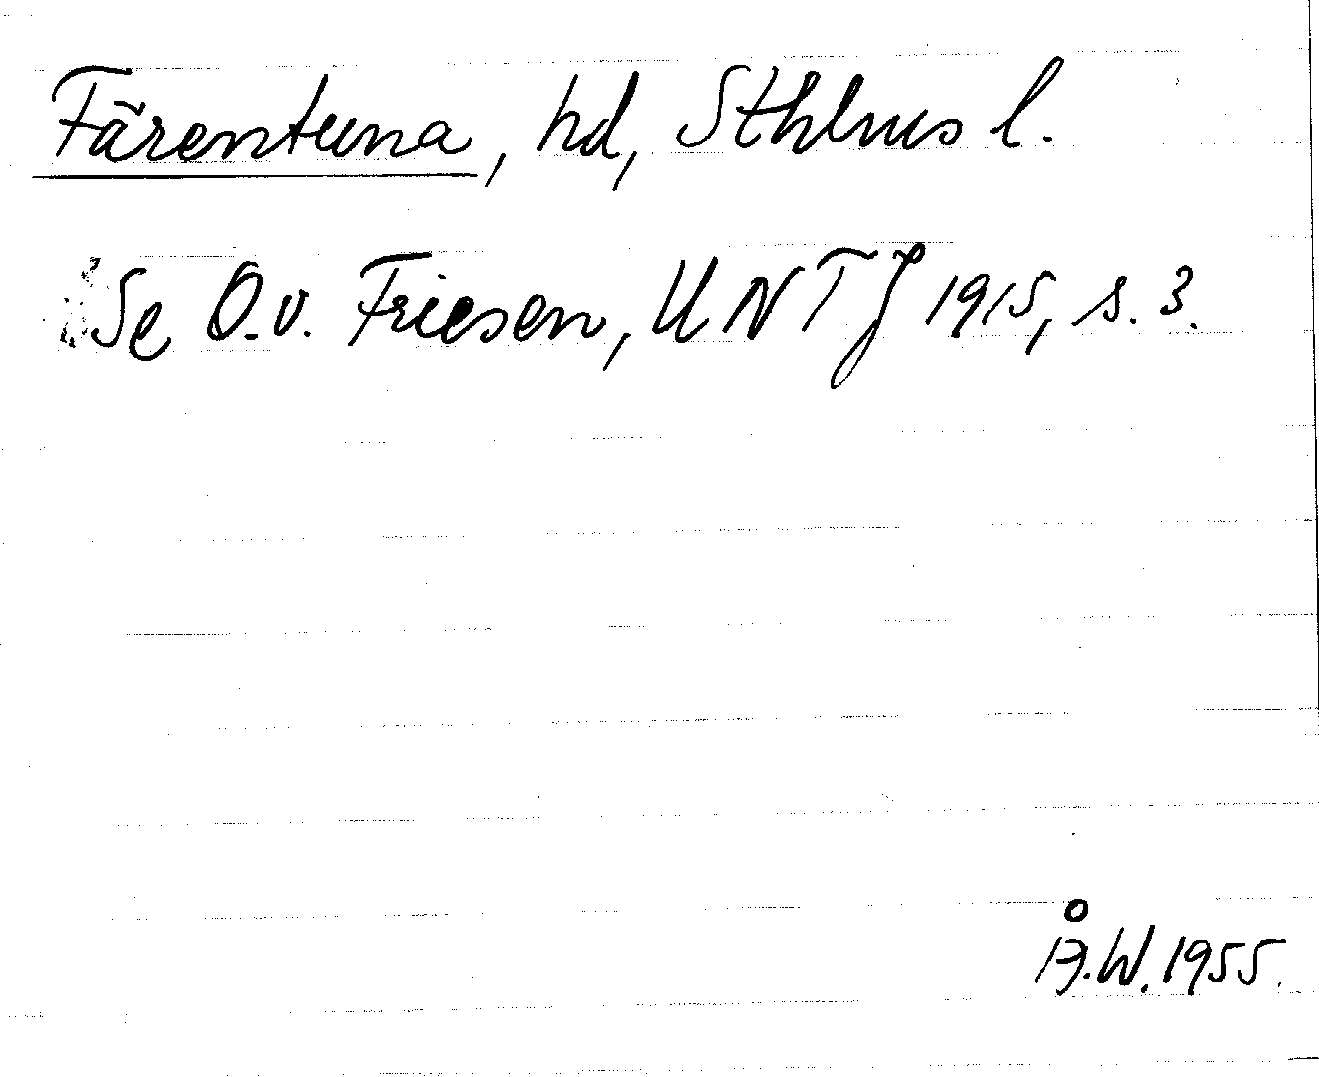 Färentuna, hd, Sthlms l.
Se O.v. Friesen, UNTJ 1915, s. 3.
Å.W. 1955.